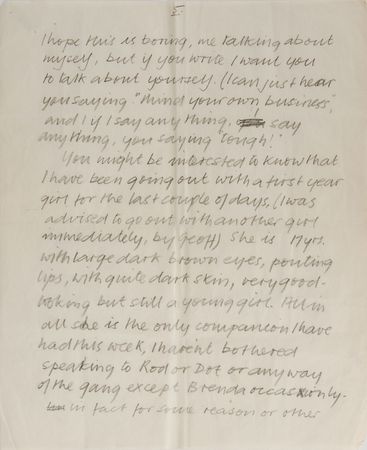 5.
I hope this is boring, me talking about
myself, but if you write I want you
to talk about yourself. (I can just hear
you saying "mind your own business",
and if I say anything, say
anything, you saying "cough!"
You might be interested to know that
I have been going out with a first year
girl for the last couple of days, (I was
advised to go out with another girl
immediately, by Geoff) She is 17yrs.
with large dark brown eyes, pouting
lips, with quite dark skin, very good-
looking but still a young girl. All in
all she is the only companion I have
had this week, I haven't bothered
speaking to Rod or Dot or any way
of the gang except Brenda occasionly-
in fact for some reason or other